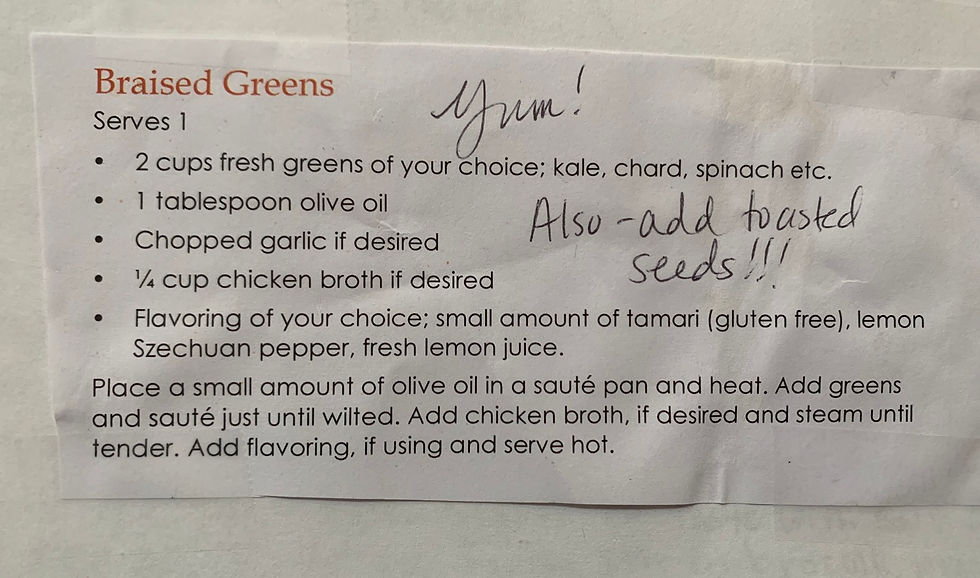 Braised Greens
Yum!
Serves 1
• 2 cups fresh greens of your choice; kale, chard, spinach etc.
• 1 tablespoon olive oil
Also - add toasted
seeds!!!
• Chopped garlic if desired
• ¼ cup chicken broth if desired
• Flavoring of your choice; small amount of tamari (gluten free), lemon
Szechuan pepper, fresh lemon juice.
Place a small amount of olive oil in a sauté pan and heat. Add greens
and sauté just until wilted. Add chicken broth, if desired and steam until
tender. Add flavoring, if using and serve hot.